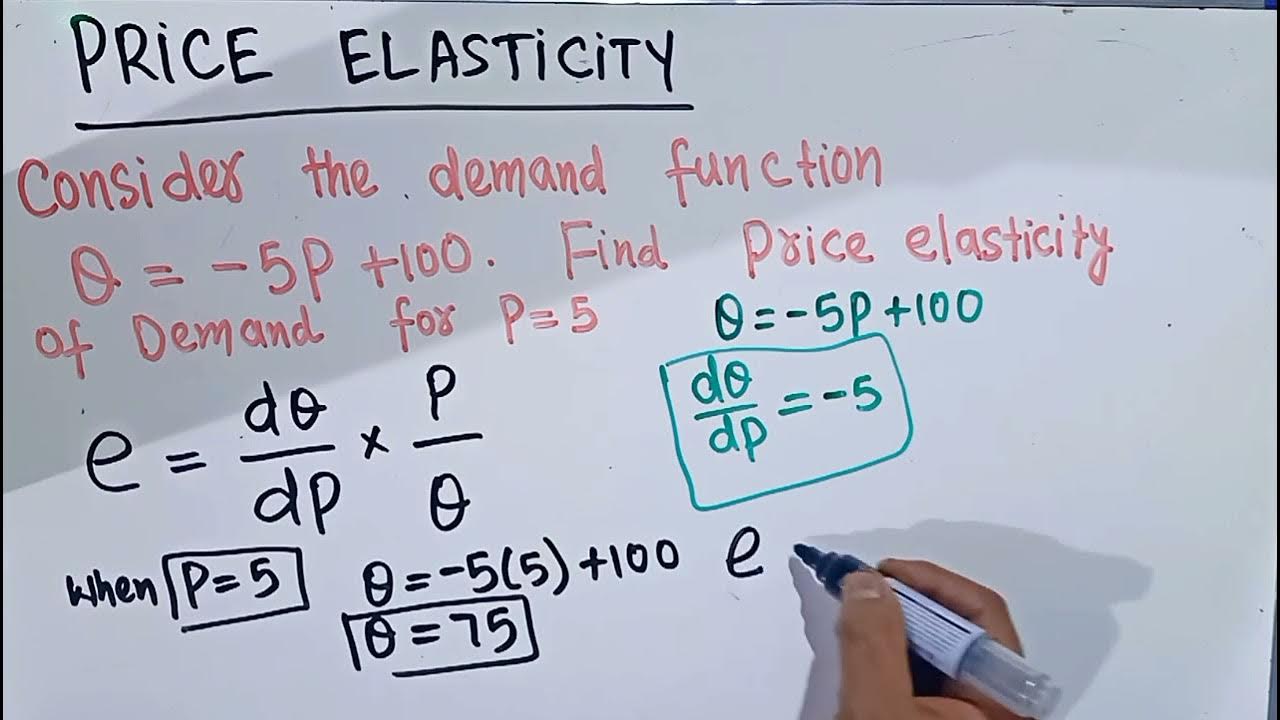 PRICE ELASTICITY
Consider the demand function
Q = -5P +100. Find Price elasticity
of Demand for P=5
Q = -5P +100
dQ/dP = -5
e = dQ/dP × P/Q
when P=5
Q = -5(5) +100
Q = 75
e